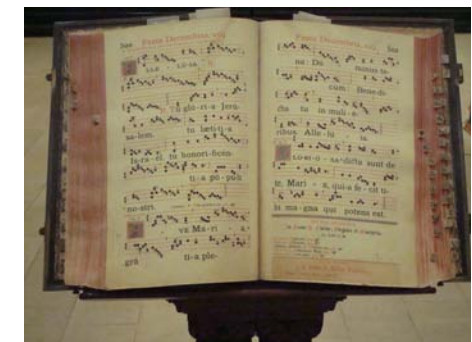 Festa Decembris, viij
lle- lú-ia.
Tu gló-ri- a Jerú-
salem. tu lætí-ti-a
Is-ra- ël tu honori-ficén-
ti-a pó-puli
no-stri.
ve Ma-rí - a,
grá ti-a ple-
Festa Decembris, viij
na: Dó minus te-
cum: Bene-dí-
cta tu in mu-li-é-
ribus. Alle-lú ia.
Lo-ri-ó - sa dicta sunt de
te, Marí - a, qui-a fe - cit ti-
bi ma-gna qui potens est.